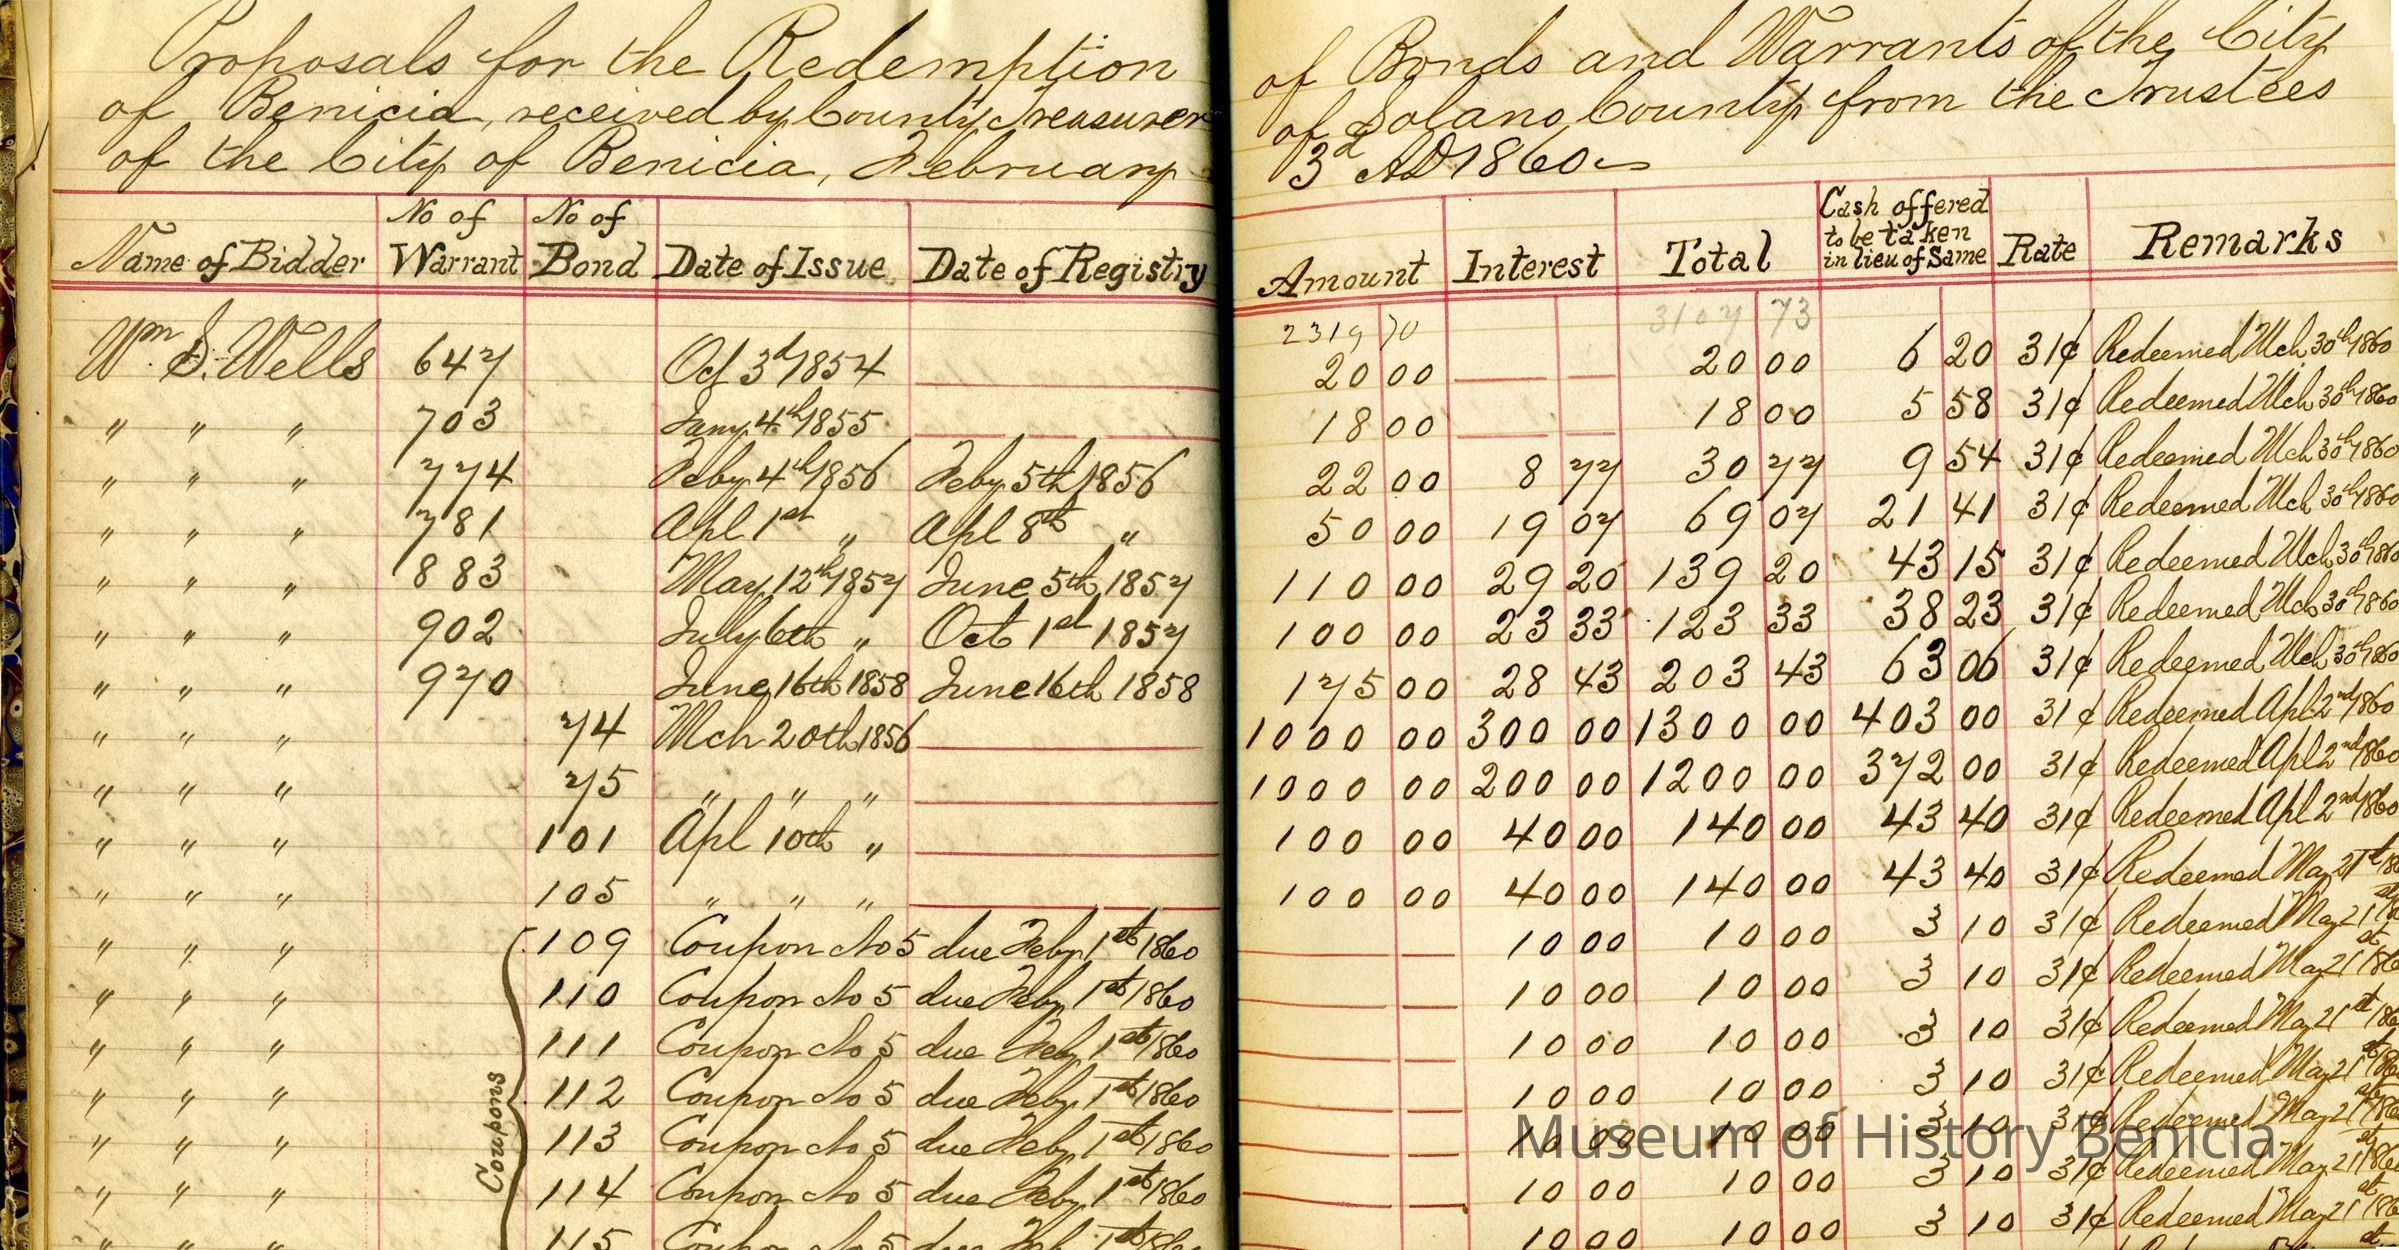 Proposals for the Redemption of Bonds and Warrants of the City
of Benicia, received by County Treasurer of Solano County from the Trustees
of the City of Benicia, February 3d AD 1860
Name of Bidder No of Warrant No of Bond Date of Issue Date of Registry Amount Interest Total Cash offered to be taken in lieu of Same Rate Remarks
2319 70 3107 73
Wm S. Wells 647 Oct 3d 1854 20 00 20 00 6 20 31¢ Redeemed Mch 30th 1860
" " " 703 Jany 4th 1855 18 00 18 00 5 58 31¢ Redeemed Mch 30th 1860
" " " 774 Feby 4th 1856 Feby 5th 1856 22 00 8 77 30 77 9 54 31¢ Redeemed Mch 30th 1860
" " " 781 Apl 1st " Apl 8th " 50 00 19 07 69 07 21 41 31¢ Redeemed Mch 30th 1860
" " " 883 May 12th 1857 June 5th 1857 110 00 29 20 139 20 43 15 31¢ Redeemed Mch 30th 1860
" " " 902 July 6th " Oct 1st 1857 100 00 23 33 123 33 38 23 31¢ Redeemed Mch 30th 1860
" " " 970 June 16th 1858 June 16th 1858 175 00 28 43 203 43 63 06 31¢ Redeemed Mch 30th 1860
" " " 74 Mch 20th 1856 1000 00 300 00 1300 00 403 00 31¢ Redeemed Apl 2nd 1860
" " " 75 " " " 1000 00 200 00 1200 00 372 00 31¢ Redeemed Apl 2nd 1860
" " " 101 Apl 10th " 100 00 40 00 140 00 43 40 31¢ Redeemed Apl 2nd 1860
" " " 105 " " " 100 00 40 00 140 00 43 40 31¢ Redeemed May 21st 186
" " " 109 Coupon No 5 due Feby 1st 1860 10 00 10 00 3 10 31¢ Redeemed May 21st
" " " 110 Coupon No 5 due Feby 1st 1860 10 00 10 00 3 10 31¢ Redeemed May 21st 186
" " " 111 Coupon No 5 due Feby 1st 1860 10 00 10 00 3 10 31¢ Redeemed May 21st 186
" " " 112 Coupon No 5 due Feby 1st 1860 10 00 10 00 3 10 31¢ Redeemed May 21st 186
" " " 113 Coupon No 5 due Feby 1st 1860 10 00 10 00 3 10 31¢ Redeemed May 21st 186
" " " 114 Coupon No 5 due Feby 1st 1860 10 00 10 00 3 10 31¢ Redeemed May 21st 186
" " " 115 Coupon No 5 due Feby 1st 1860 10 00 10 00 3 10 31¢ Redeemed May 21st 186
Coupons
Museum of History Benicia